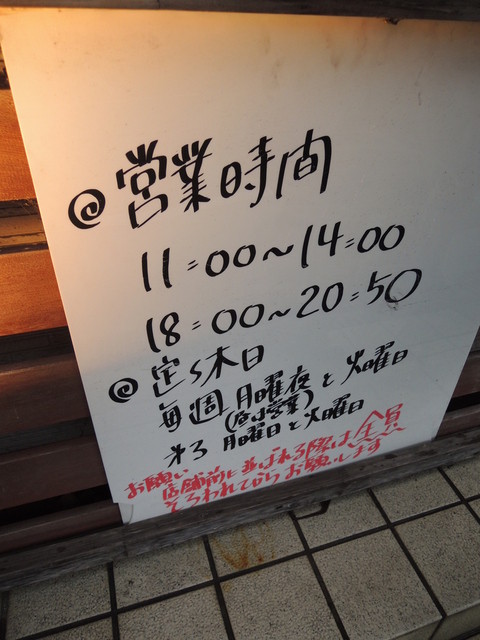 @営業時間
11:00～14:00
18:00～20:50
@定休日
毎週月曜夜と火曜日
(昼は営業)
第3月曜日と火曜日
お願い
店舗前に並ばれる際は全員
そろわれてからお願いします